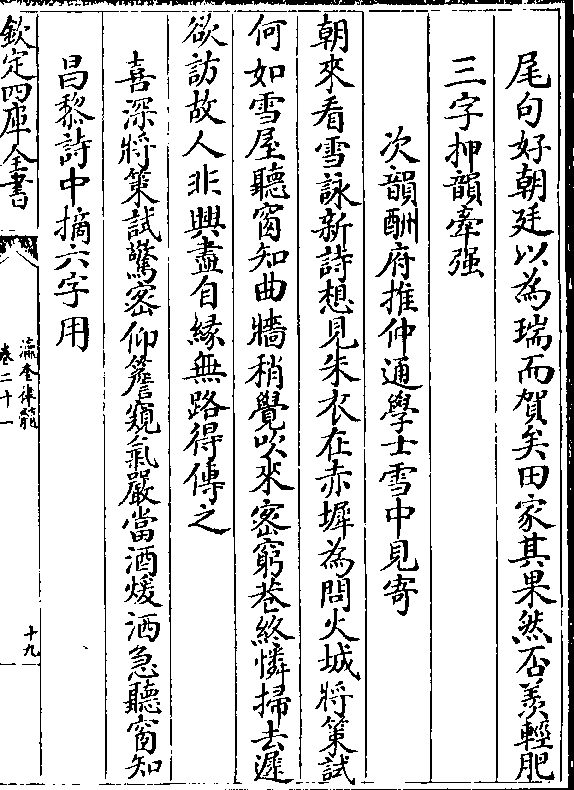 尾句好朝廷以為瑞而賀矣田家其果然否羨輕肥
三字押韻牽强
次韻酬府推仲通學士雪中見寄
朝來看雪詠新詩想見朱衣在赤墀為問火城將策試
何如雪屋聽窗知曲牆稍覺吹來密窮巷終憐掃去遲
欲訪故人非興盡自緣無路得傳之
喜深將策試驚密仰簷窺氣嚴當酒煖洒急聽窗知
昌黎詩中摘六字用
欽定四庫全書
瀛奎律髓
卷二十一
十九